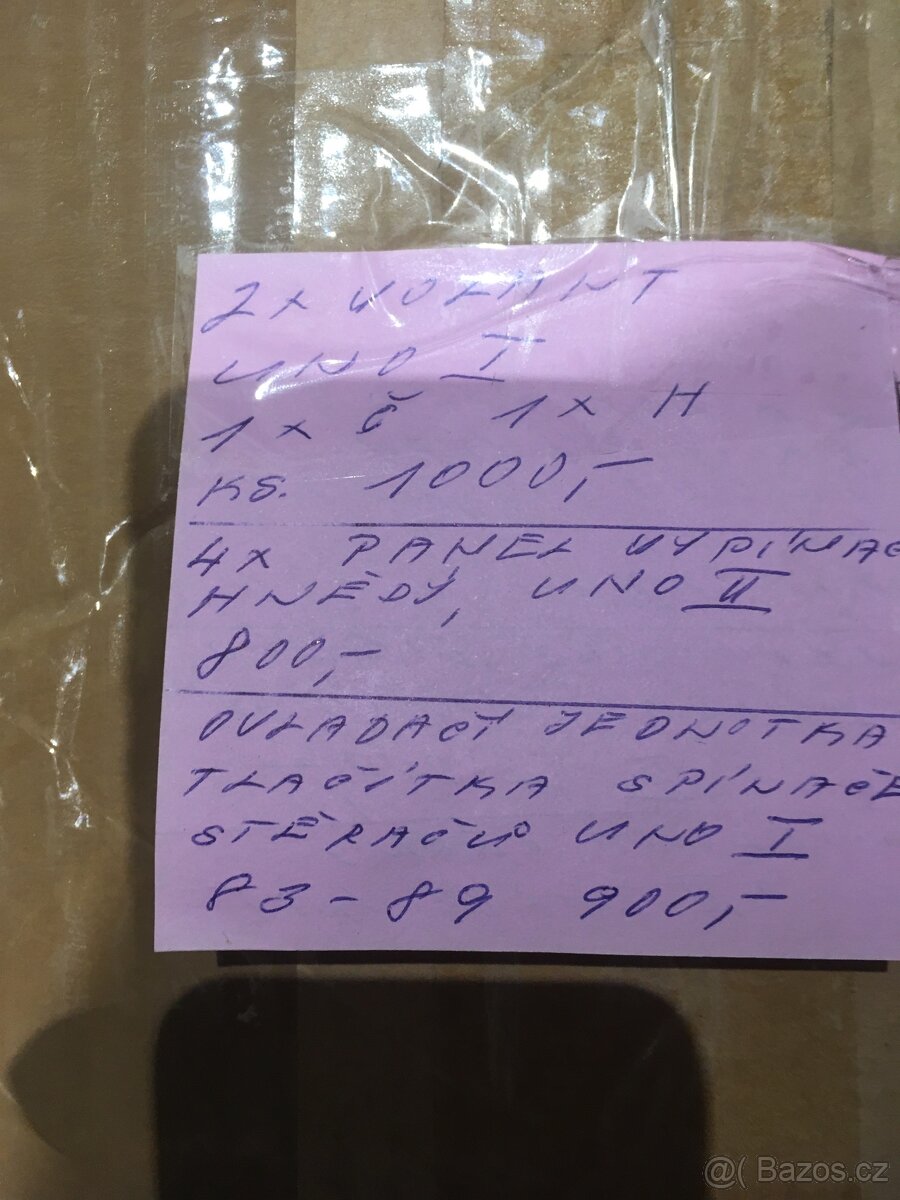 2x VOLANT
UNO I
1x Č 1x H
KS. 1000,-
4x PANEL VYPÍNAČ
HNĚDÝ, UNO II
800,-
OVLADAČÍ JEDNOTKA
TLAČÍTKA SPÍNAČE
STĚRAČŮ UNO I
83-89 900,-
@( Bazos.cz